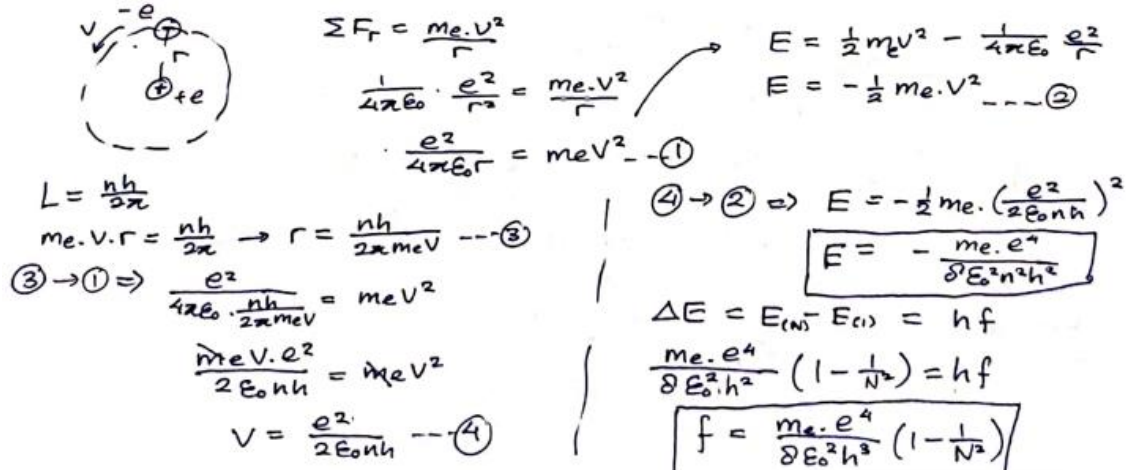 v -e
r
+ +e
ΣFr = me.v²/r
1/4πε₀ · e²/r² = me.v²/r
e²/4πε₀r = mev² --①
L = nh/2π
me.v.r = nh/2π → r = nh/2πmev ---③
③→① ⇒ e²/(4πε₀.nh/2πmev) = mev²
mev.e²/2ε₀nh = mev²
v = e²/2ε₀nh ---④
E = ½mev² - 1/4πε₀ e²/r
E = -½ me.v² ----②
④→② ⇒ E = -½ me.(e²/2ε₀nh)²
E = - me.e⁴/8ε₀²n²h²
ΔE = E(N) - E(1) = hf
me.e⁴/8ε₀².h² (1-1/N²) = hf
f = me.e⁴/8ε₀²h³ (1-1/N²)